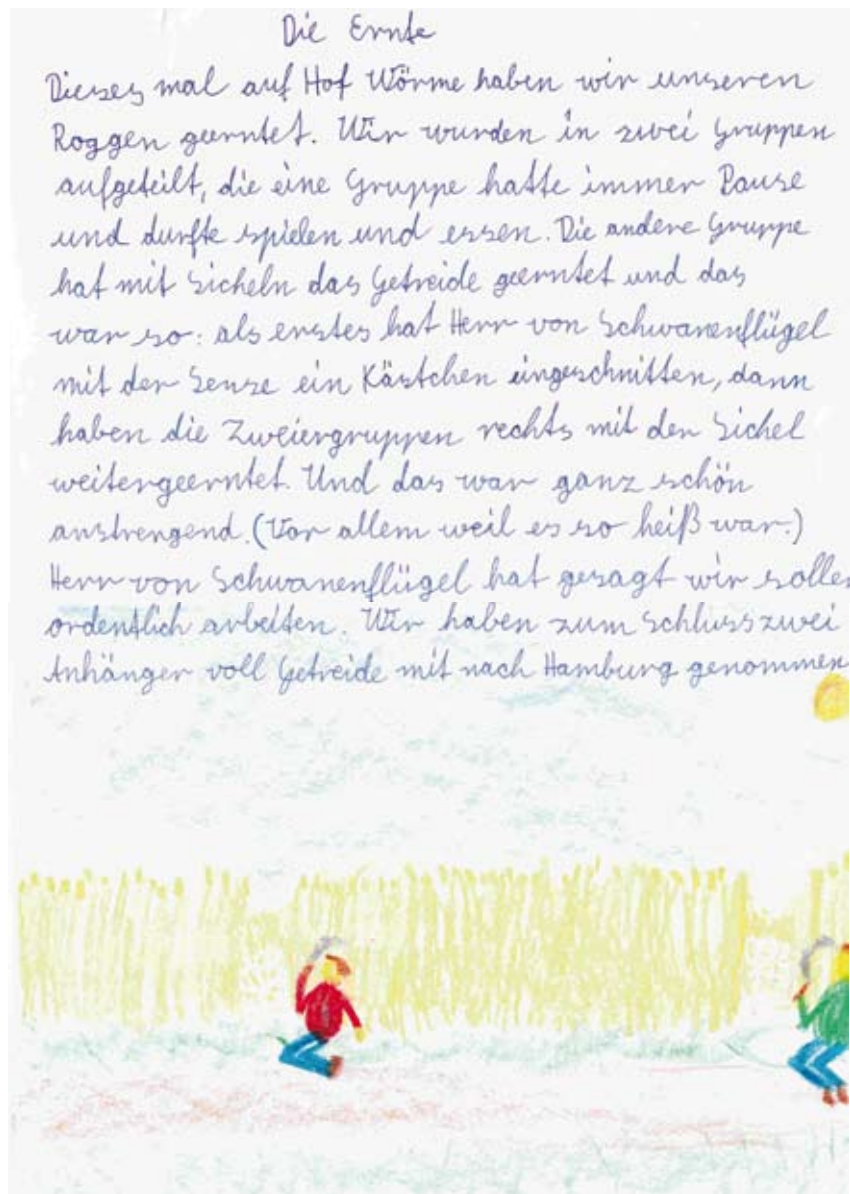 Die Ernte
Dieses mal auf Hof Wörme haben wir unseren
Roggen geerntet. Wir wurden in zwei Gruppen
aufgeteilt, die eine Gruppe hatte immer Pause
und durfte spielen und essen. Die andere Gruppe
hat mit Sicheln das Getreide geerntet und das
war so: als erstes hat Herr von Schwanenflügel
mit der Sense ein Kästchen eingeschnitten, dann
haben die Zweiergruppen rechts mit der Sichel
weitergeerntet. Und das war ganz schön
anstrengend. (Vor allem weil es so heiß war.)
Herr von Schwanenflügel hat gesagt wir sollen
ordentlich arbeiten. Wir haben zum Schluss zwei
Anhänger voll Getreide mit nach Hamburg genommen